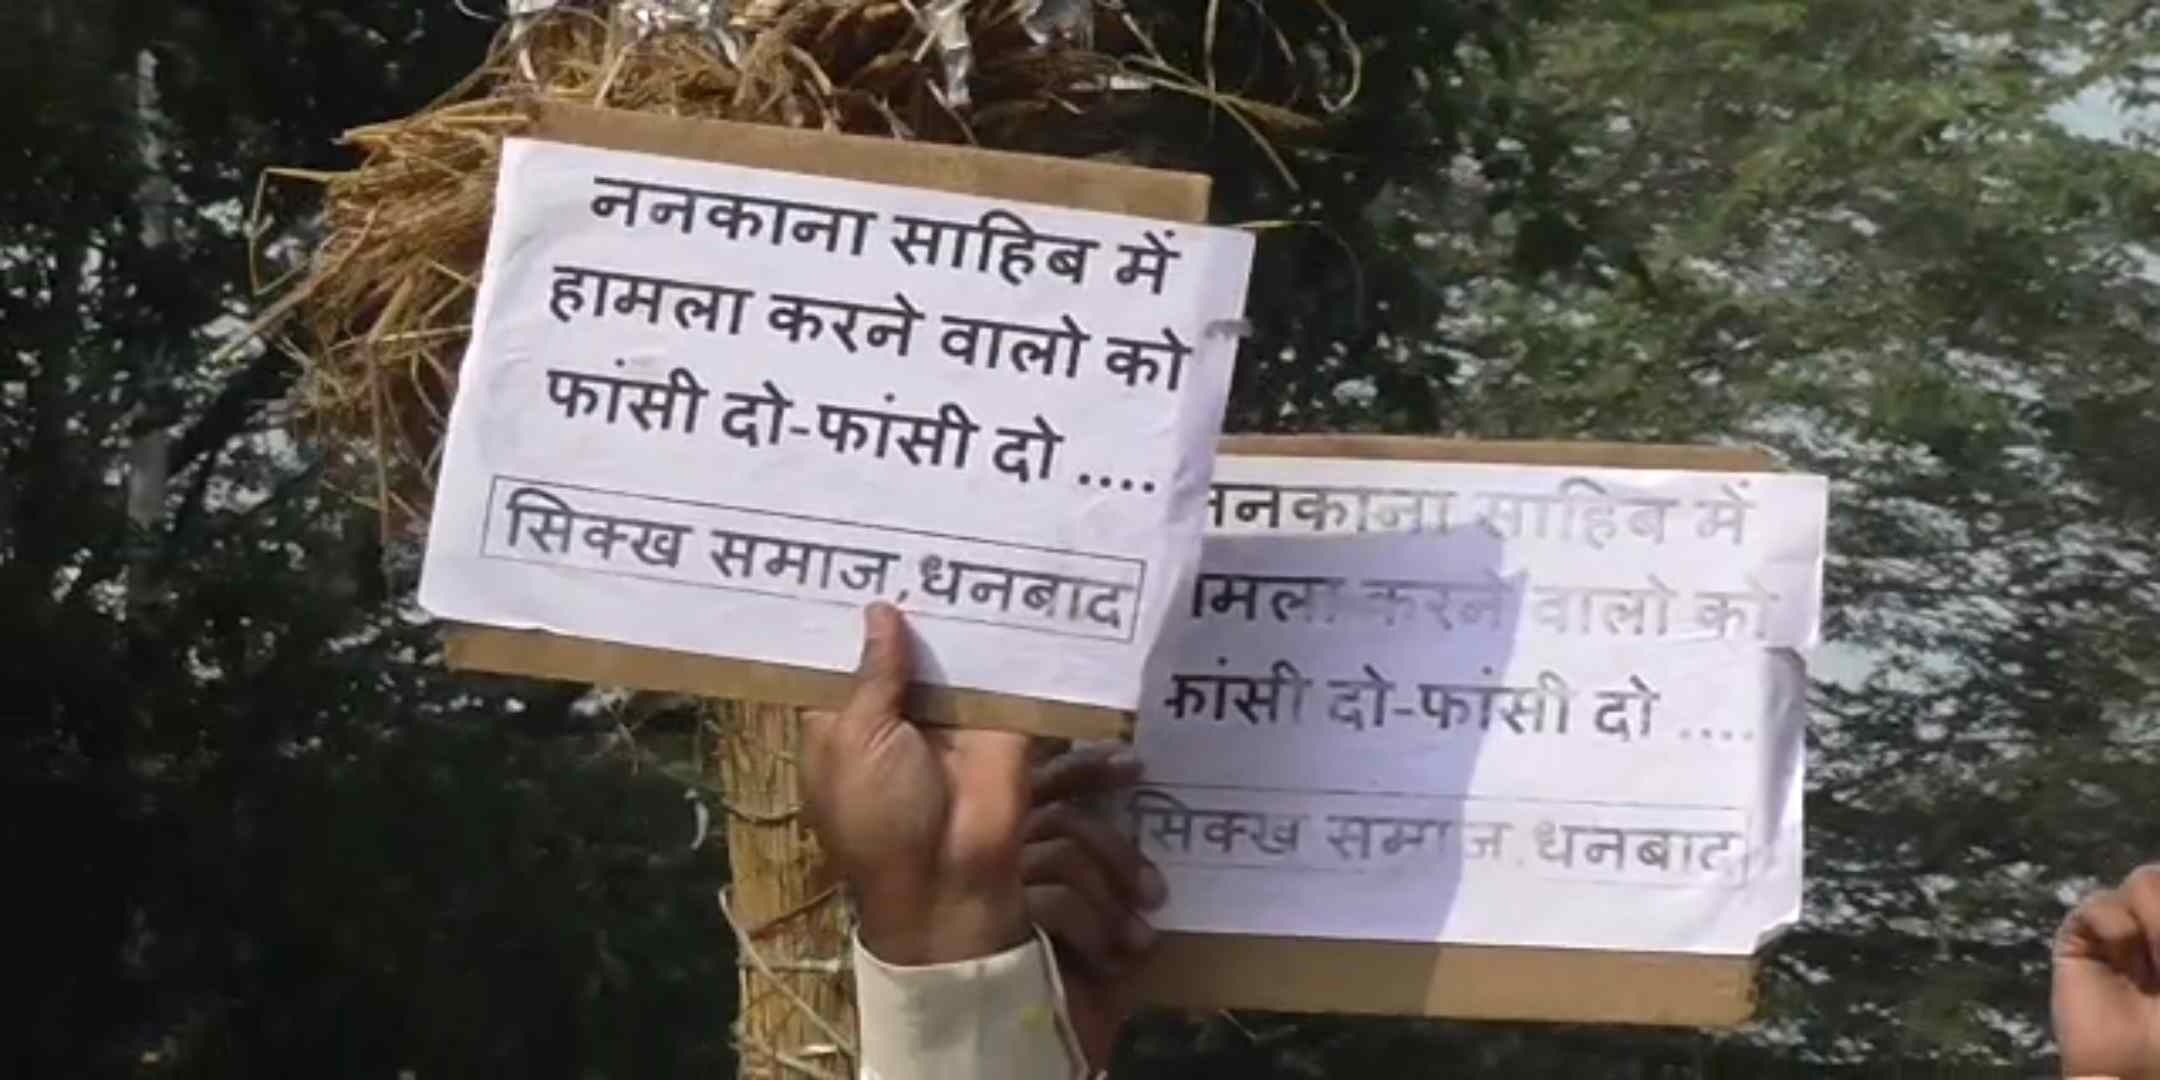 ननकाना साहिब में
हामला करने वालो को
फांसी दो-फांसी दो ....
सिक्ख समाज,धनबाद
ननकाना साहिब में
हामला करने वालो को
फांसी दो-फांसी दो ....
सिक्ख समाज,धनबाद